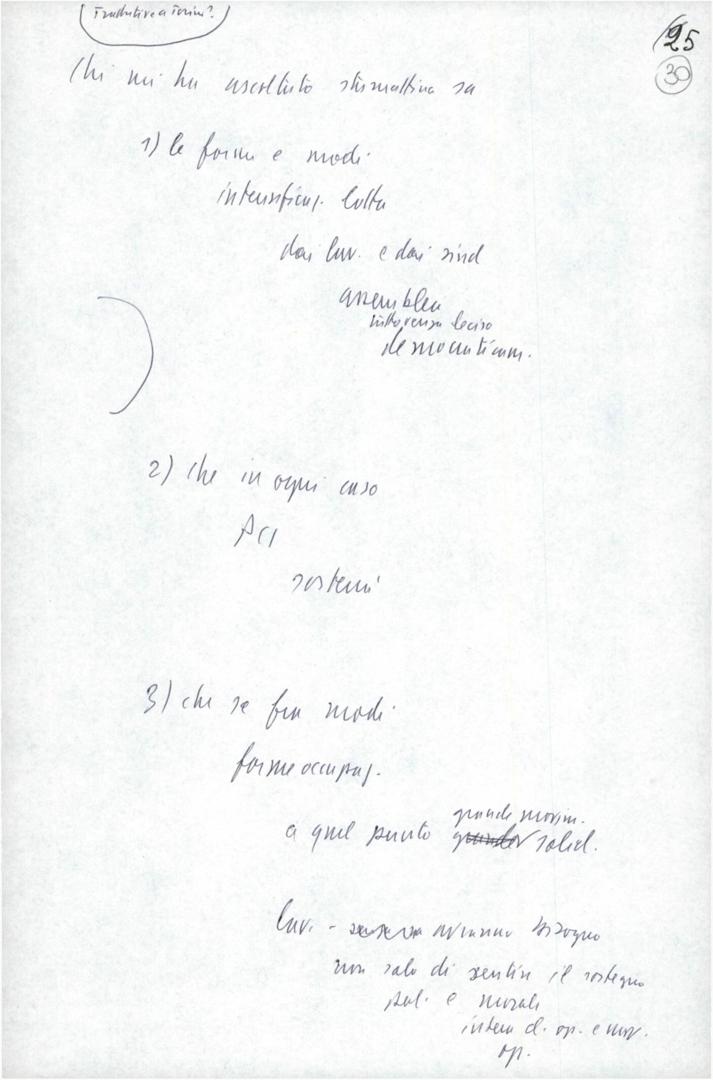 Trattative a Torino?
25
30
Chi mi ha ascoltato stamattina sa
1) le forme e modi
intensificaz. lotta
dai lav. e dai sind
assemblea
democraticam.
2) che in ogni caso
PCI
sosterrà
3) che se fra modi
forme occupaz.
a quel punto grande movim.
solid.
lav. - avranno bisogno
non solo di sentire il sostegno
pol. e morale
intera cl. op. e mov.
op.